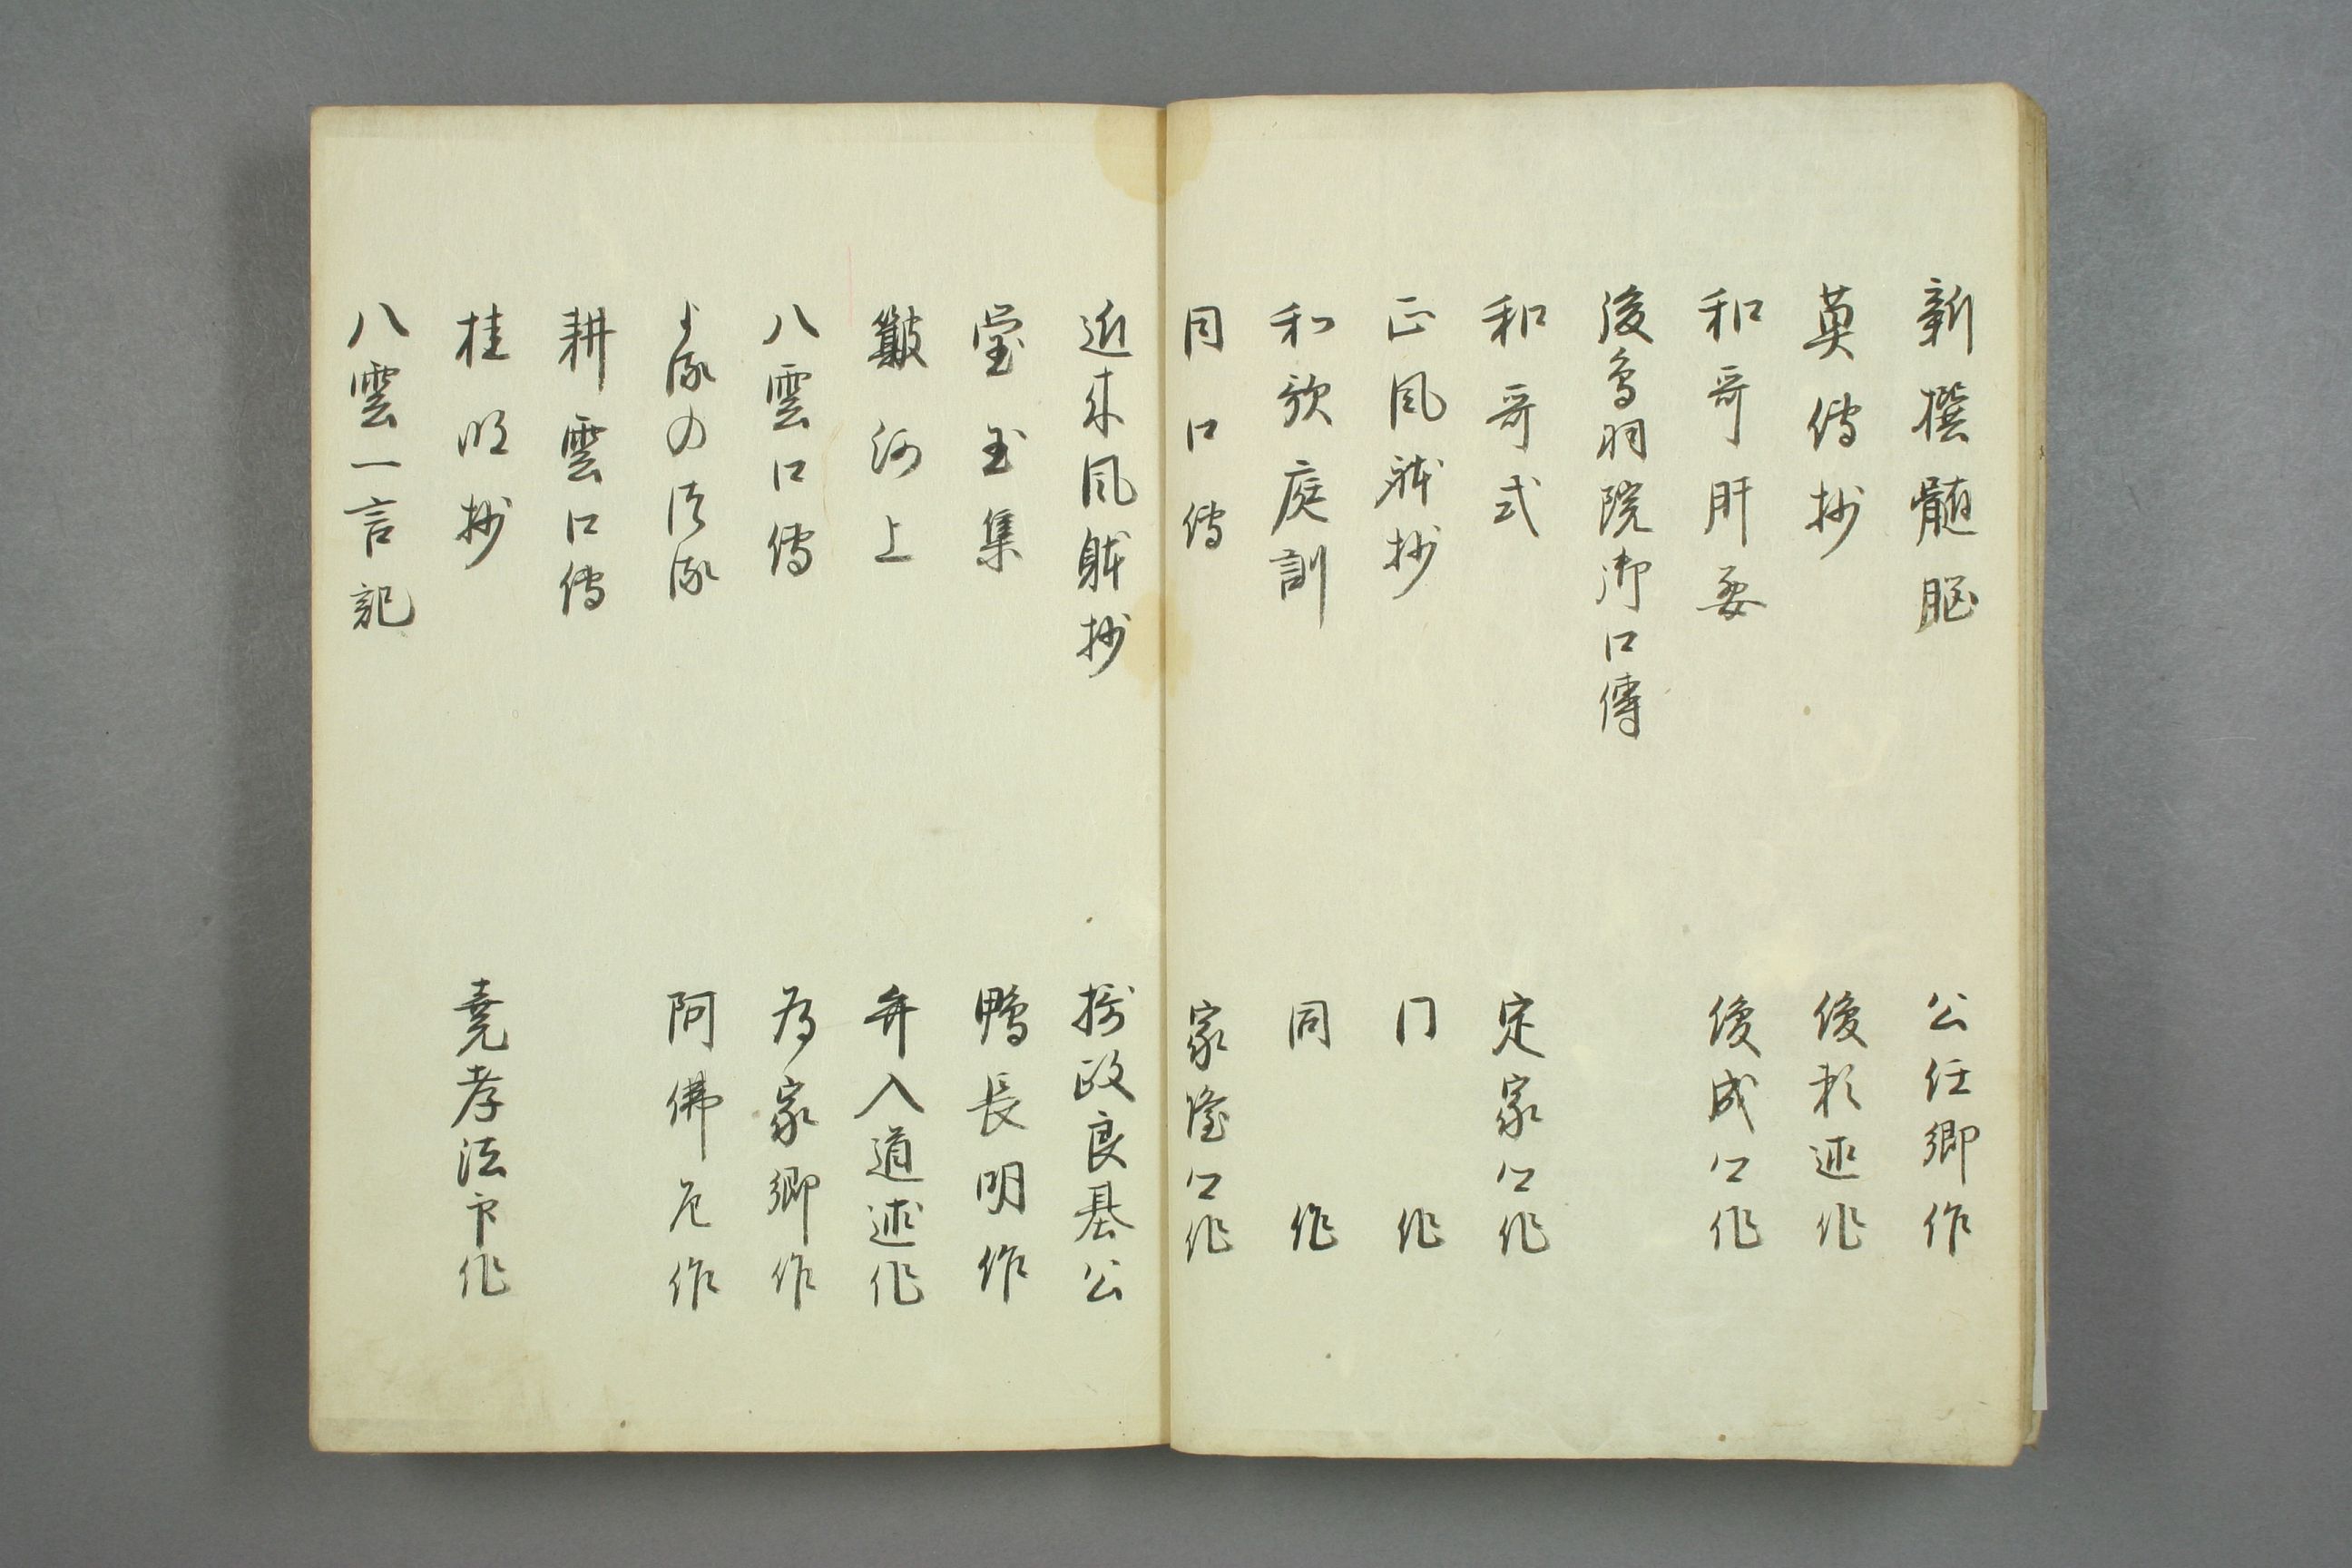 新撰髄脳 公任卿作
莫傳抄 俊頼述作
和哥肝要 俊成公作
後鳥羽院御口傳
和哥式 定家公作
正風躰抄 同作
和歌庭訓 同作
同口傳 家隆公作
近来風躰抄 摂政良基公
瑩玉集 鴨長明作
簸河上 弁入道述作
八雲口傳 為家卿作
よるの鶴 阿佛尼作
耕雲口傳
桂明抄 堯孝法印作
八雲一言記